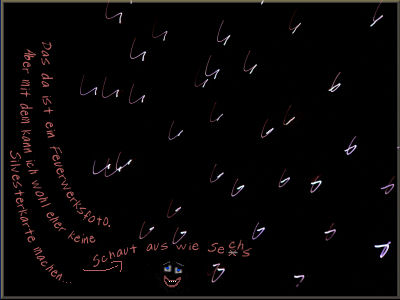 Das da ist ein Feuerwerksfoto.
Aber mit dem kann ich wohl eher keine
Silvesterkarte machen...
Schaut aus wie Sechs